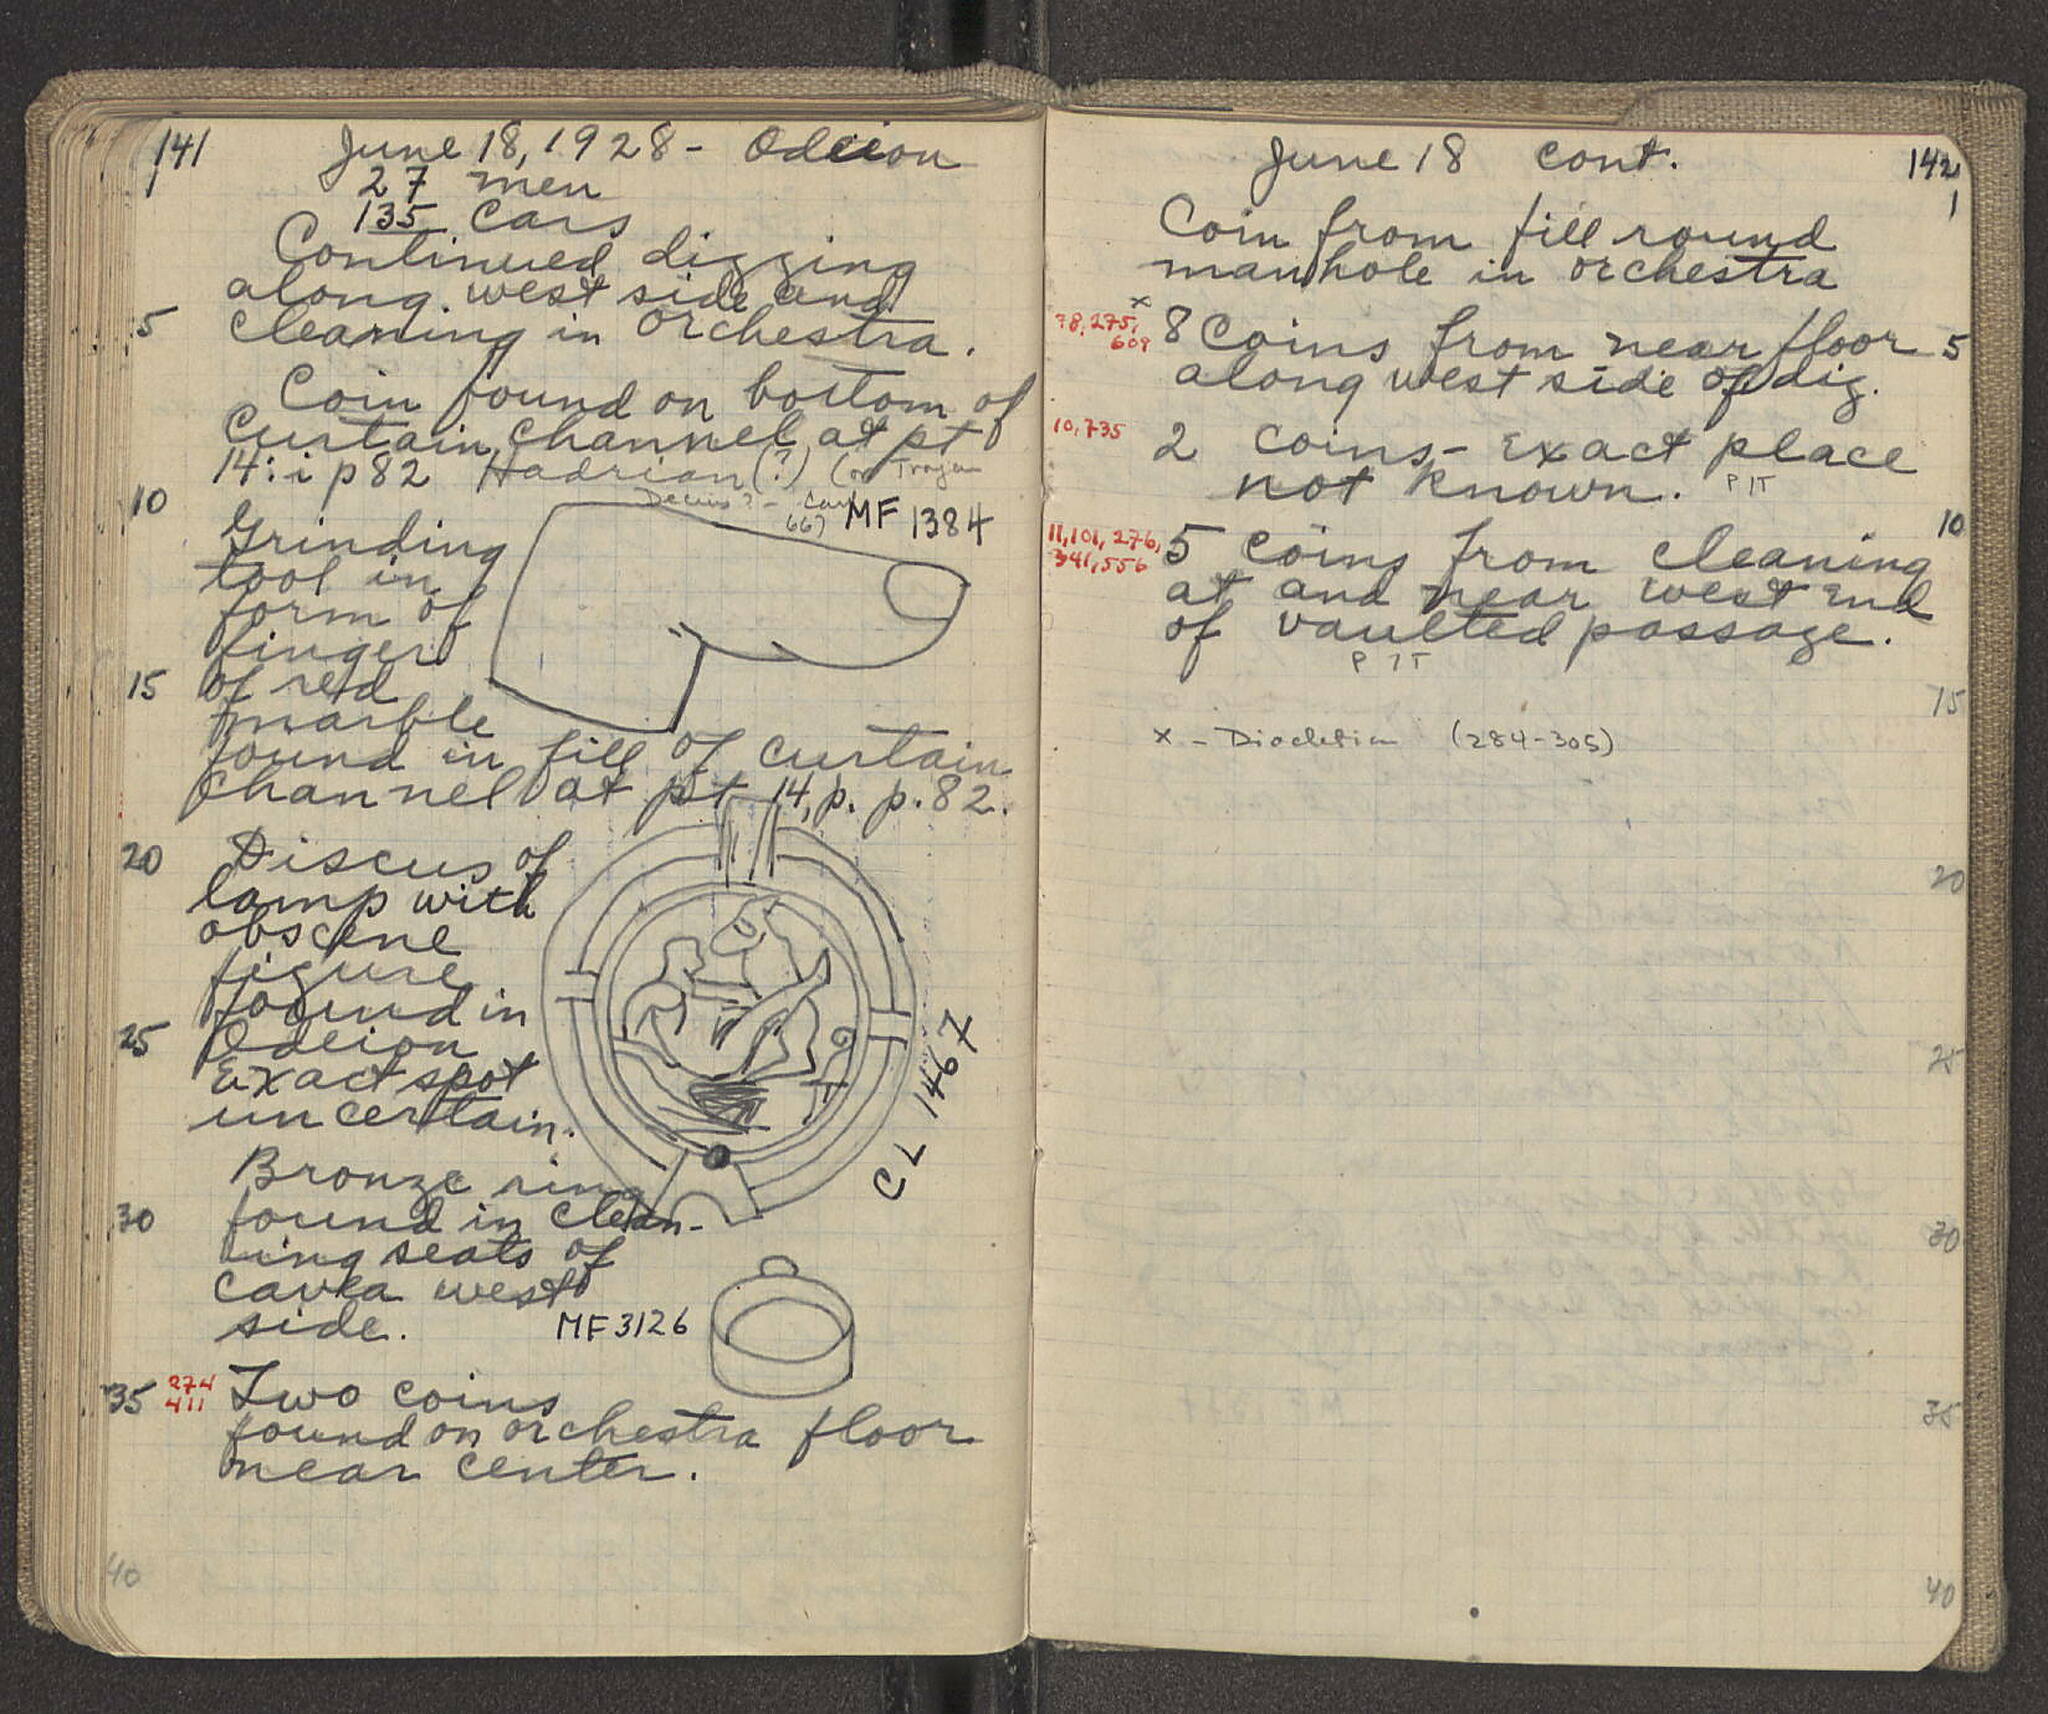 141
June 18, 1928 - Odeion
27 men
135 cars
Continued digging
along west side and
5 cleaning in Orchestra.
Coin found on bottom of
curtain channel at pt
14:i p 82 Hadrian (?) (or Trajan
Decius? -
667)
10
MF 1384
Grinding
tool in
form of
finger
15 of red
marble
found in fill of curtain
channel at pt 14, p. p. 82.
20 Discus of
lamp with
obscene
figure
found in
25 Odeion
Exact spot
uncertain.
CL 1467
Bronze ring
30 found in clean-
ing seats of
cavea west
side. MF 3126
35 274 Two coins
411
found on orchestra floor
near center.
40
June 18 cont. 142
1
Coin from fill round
manhole in orchestra
x
78, 275, 8 Coins from near floor 5
609
along west side of dig.
10, 735 2 coins - Exact place
not known. P IT
10
11, 101, 276, 5 coins from cleaning
341, 556
at and near west end
of vaulted passage.
P IT
15
x - Diocletian (284-305)
20
25
30
35
40